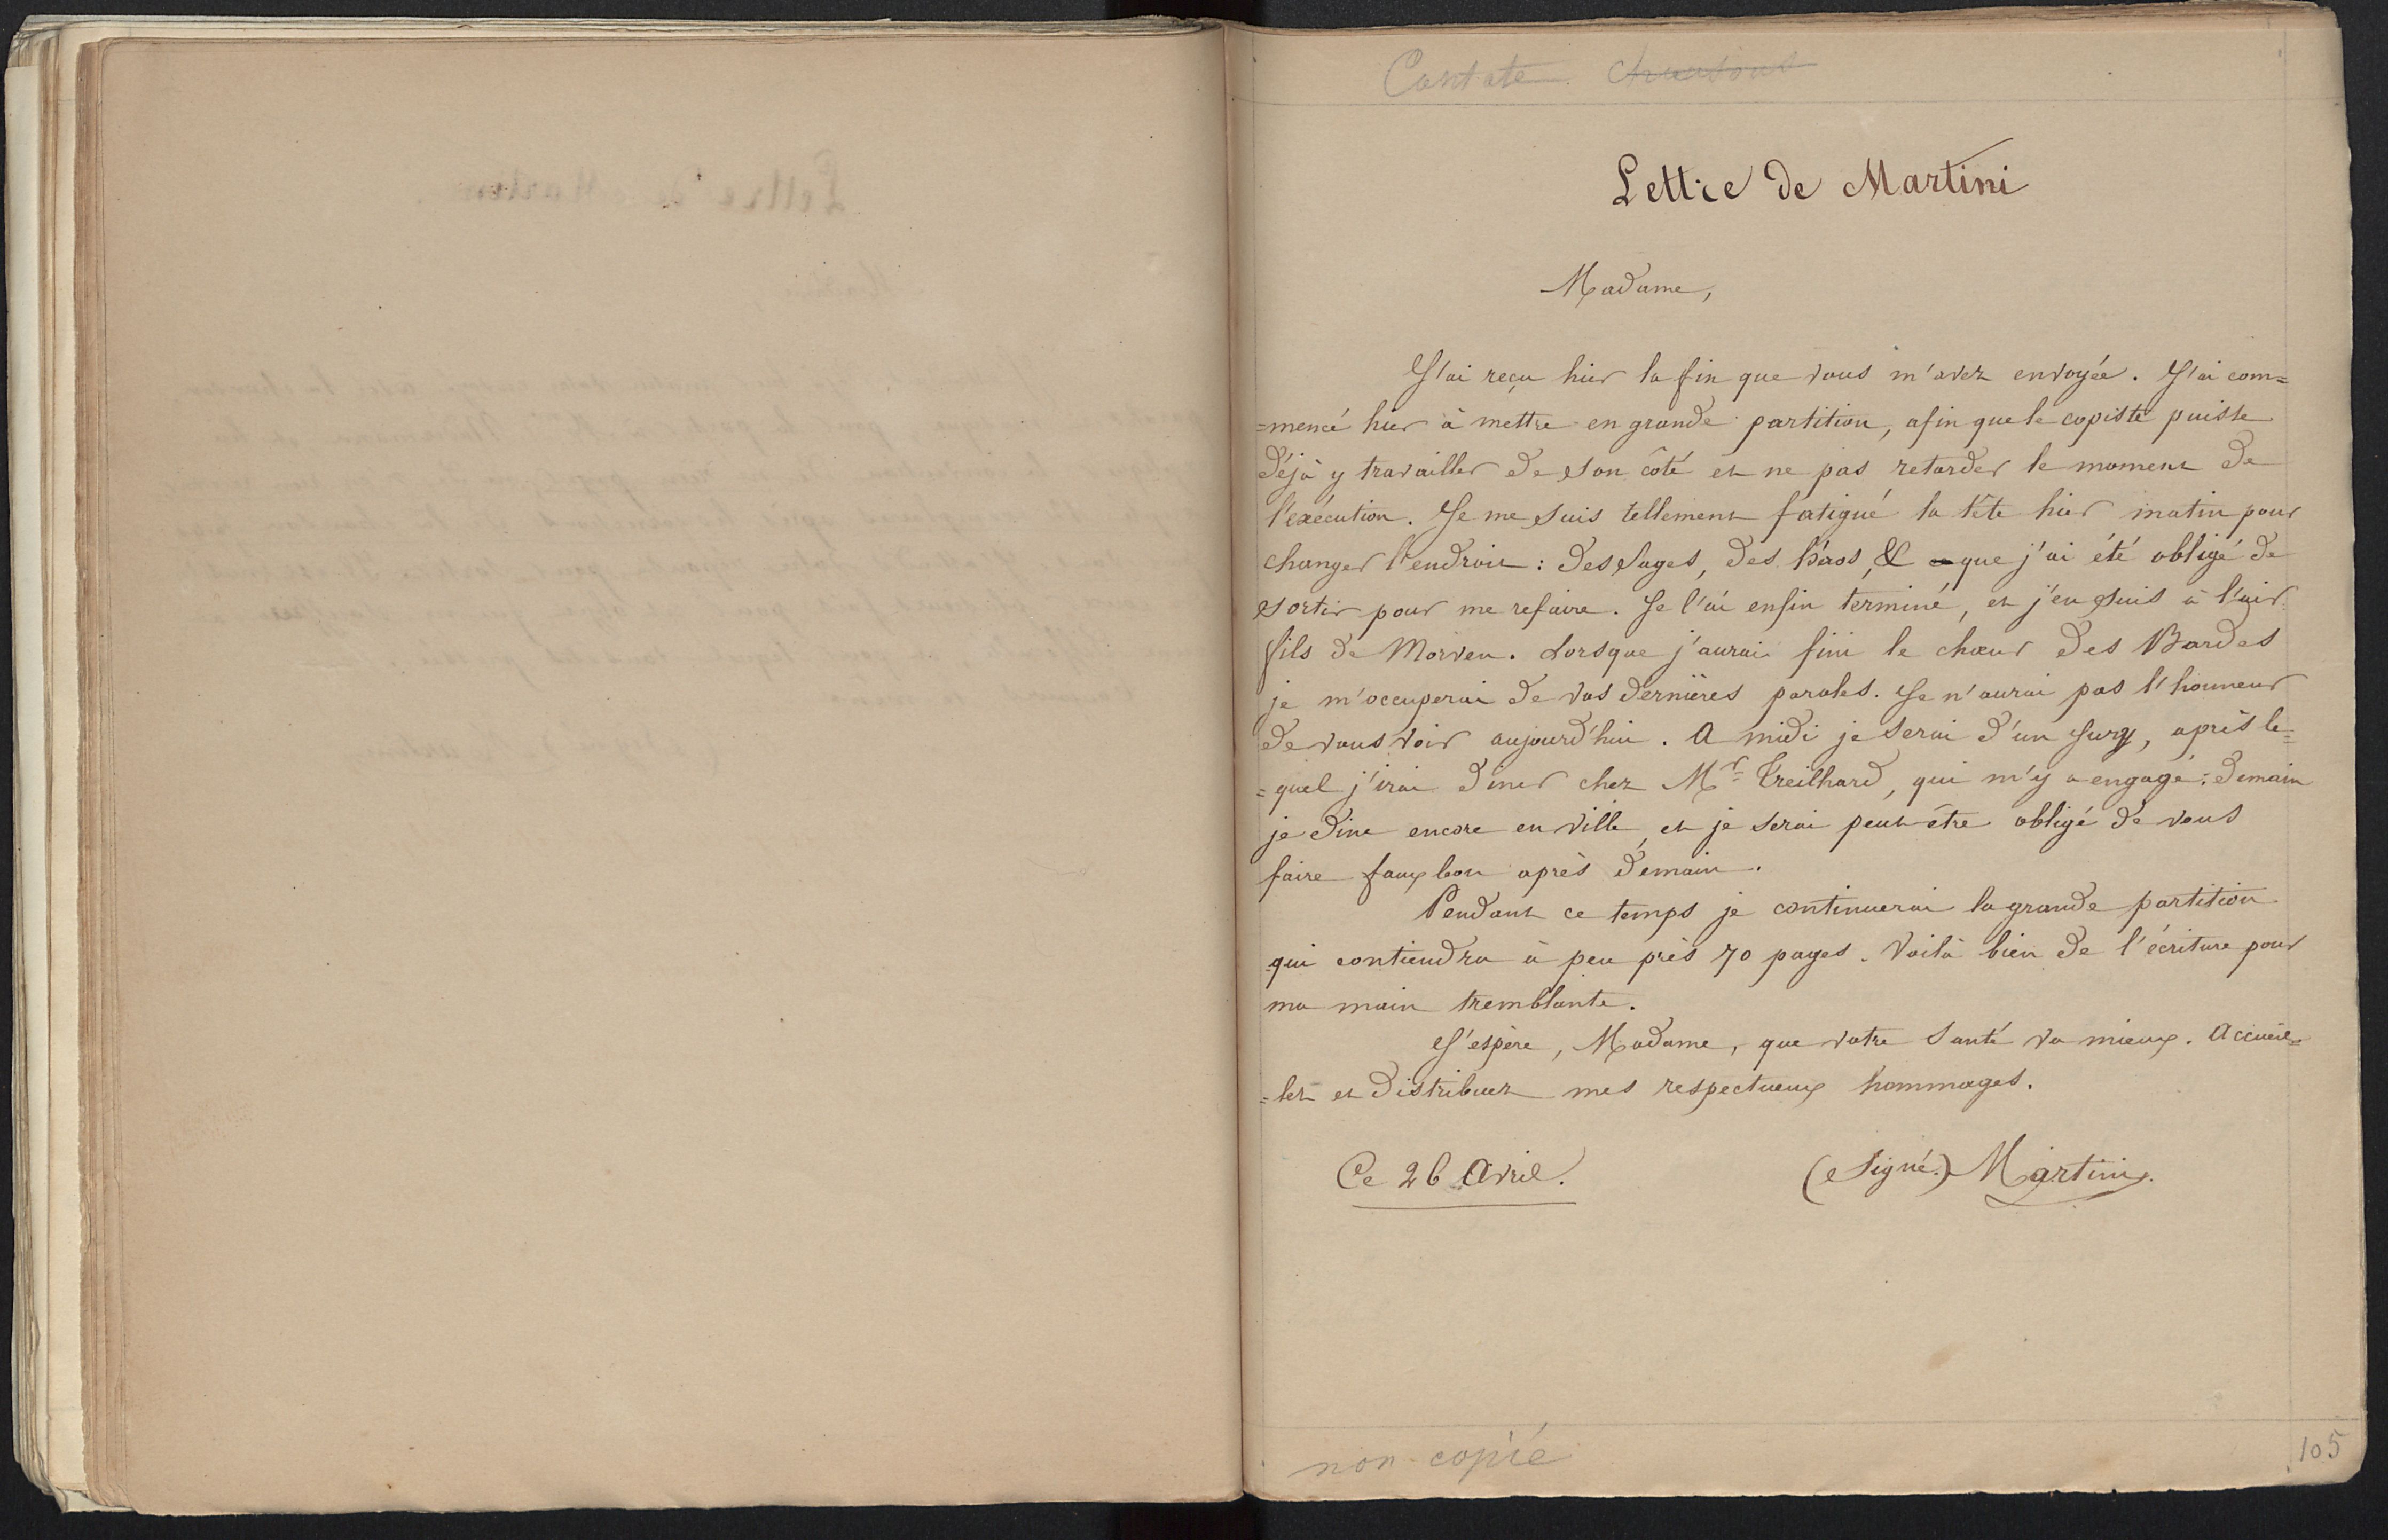 Cantate Chansons
Lettre de Martini
Madame,
J'ai reçu hier la fin que vous m'avez envoyée. J'ai com=
=mencé hier à mettre en grande partition, afin que le copiste puisse
déjà y travailler de son côté et ne pas retarder le moment de
l'exécution. Je me suis tellement fatigué la tête hier matin pour
changer l'endroit : des sages, des & que j'ai été obligé de
sortir pour me refaire. Je l'ai enfin terminé, et j'en suis à l'air
fils de Morven. Lorsque j'aurai fini le chœur des Bardes
je m'occuperai de vos dernières paroles. Je n'aurai pas l'honneur
de vous voir aujourd'hui. A midi je serai d'un jury, après le=
=quel j'irai diner chez Mr Treilhard, qui m'y a engagé : demain
je dine encore en ville, et je serai peut-être obligé de vous
faire faux bon après demain.
Pendant ce temps je continuerai la grande partition
qui contiendra à peu près 70 pages. Voilà bien de l'écriture pour
ma main tremblante.
J'espère, Madame, que votre santé va mieux. Accueil=
=lez et distribuez mes respectueux hommages.
Ce 26 Avril. (Signé.) Martini.
non copié
105